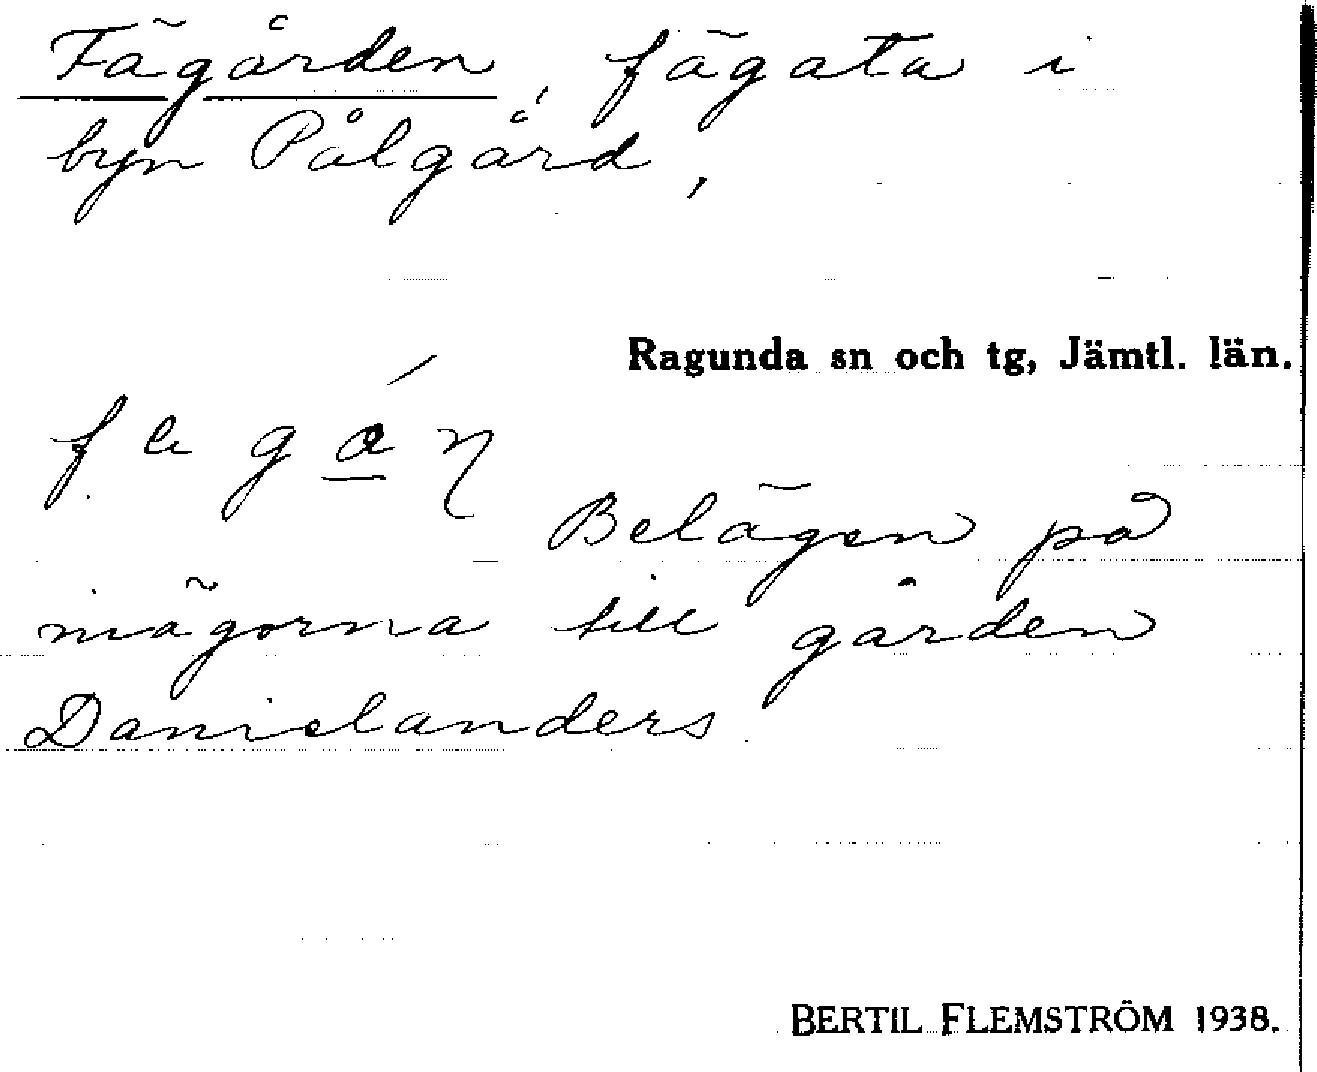 Fägården, fägata i
byn Pålgård,
Ragunda sn och tg, Jämtl. län.
Belägen på
inägorna till gården
Danielanders.
BERTIL FLEMSTRÖM 1938.